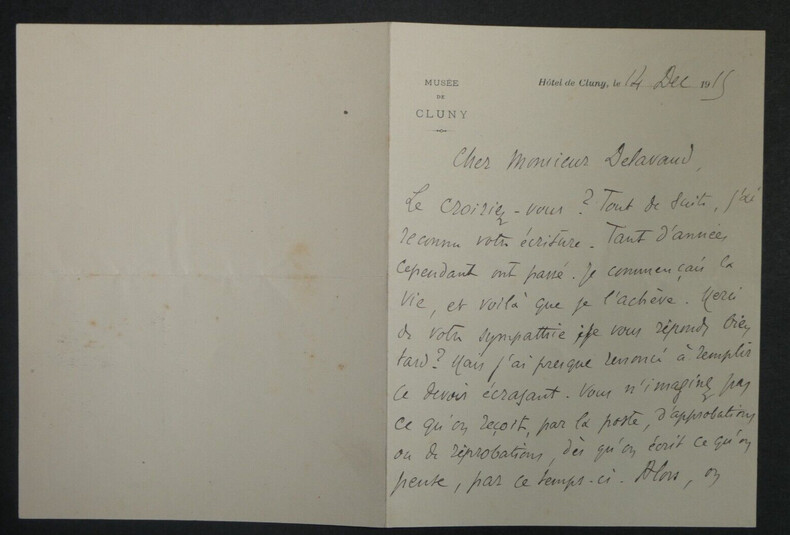 MUSÉE
DE
CLUNY
Hôtel de Cluny, le 14 Dec 1915
Cher Monsieur Delavaud,
Le croiriez-vous ? Tout de suite, j'ai
reconnu votre écriture. Tant d'années
cependant ont passé. Je commençais la
vie, et voilà que je l'achève. Merci
de votre sympathie je vous réponds bien
tard ? Mais j'ai presque renoncé à remplir
ce devoir écrasant. Vous n'imaginez pas
ce qu'on reçoit, par la poste, d'approbations
ou de réprobations, dès qu'on écrit ce qu'on
pense, par ce temps-ci. Alors, on